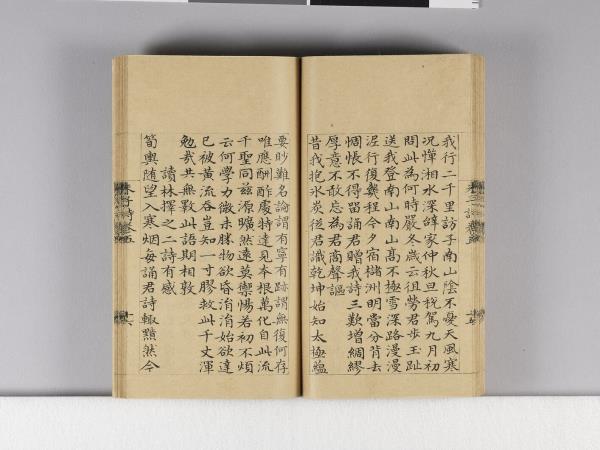 我行二千里訪子南山陰不憂天風寒
況憚湘水深辭家仲秋旦稅駕九月初
問此為何時嚴冬歲云徂勞君步玉趾
送我登南山南山高不極雪深路漫漫
泥行復幾程今夕宿櫧洲明當分背去
惆悵不得留誦君贈我詩三歎增綢繆
厚意不敢忘為君商聲謳
昔我抱冰炭從君識乾坤始知太極蘊
要眇難名論謂有寧有跡謂無復何存
唯應酬酢處特達見本根萬化自此流
千聖同茲源曠然遠莫禦惕若初不煩
云何學力微未勝物欲昏涓涓始欲達
已被黃流吞豈知一寸膠救此千丈渾
勉哉共無斁此語期相敦
讀林擇之二詩有感
筍輿隨望入寒烟每誦君詩輒黯然今